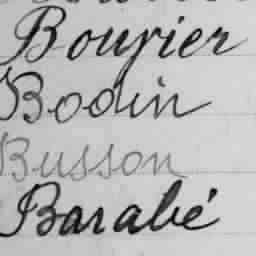 Bouvier
Bodin
Busson
Barabé